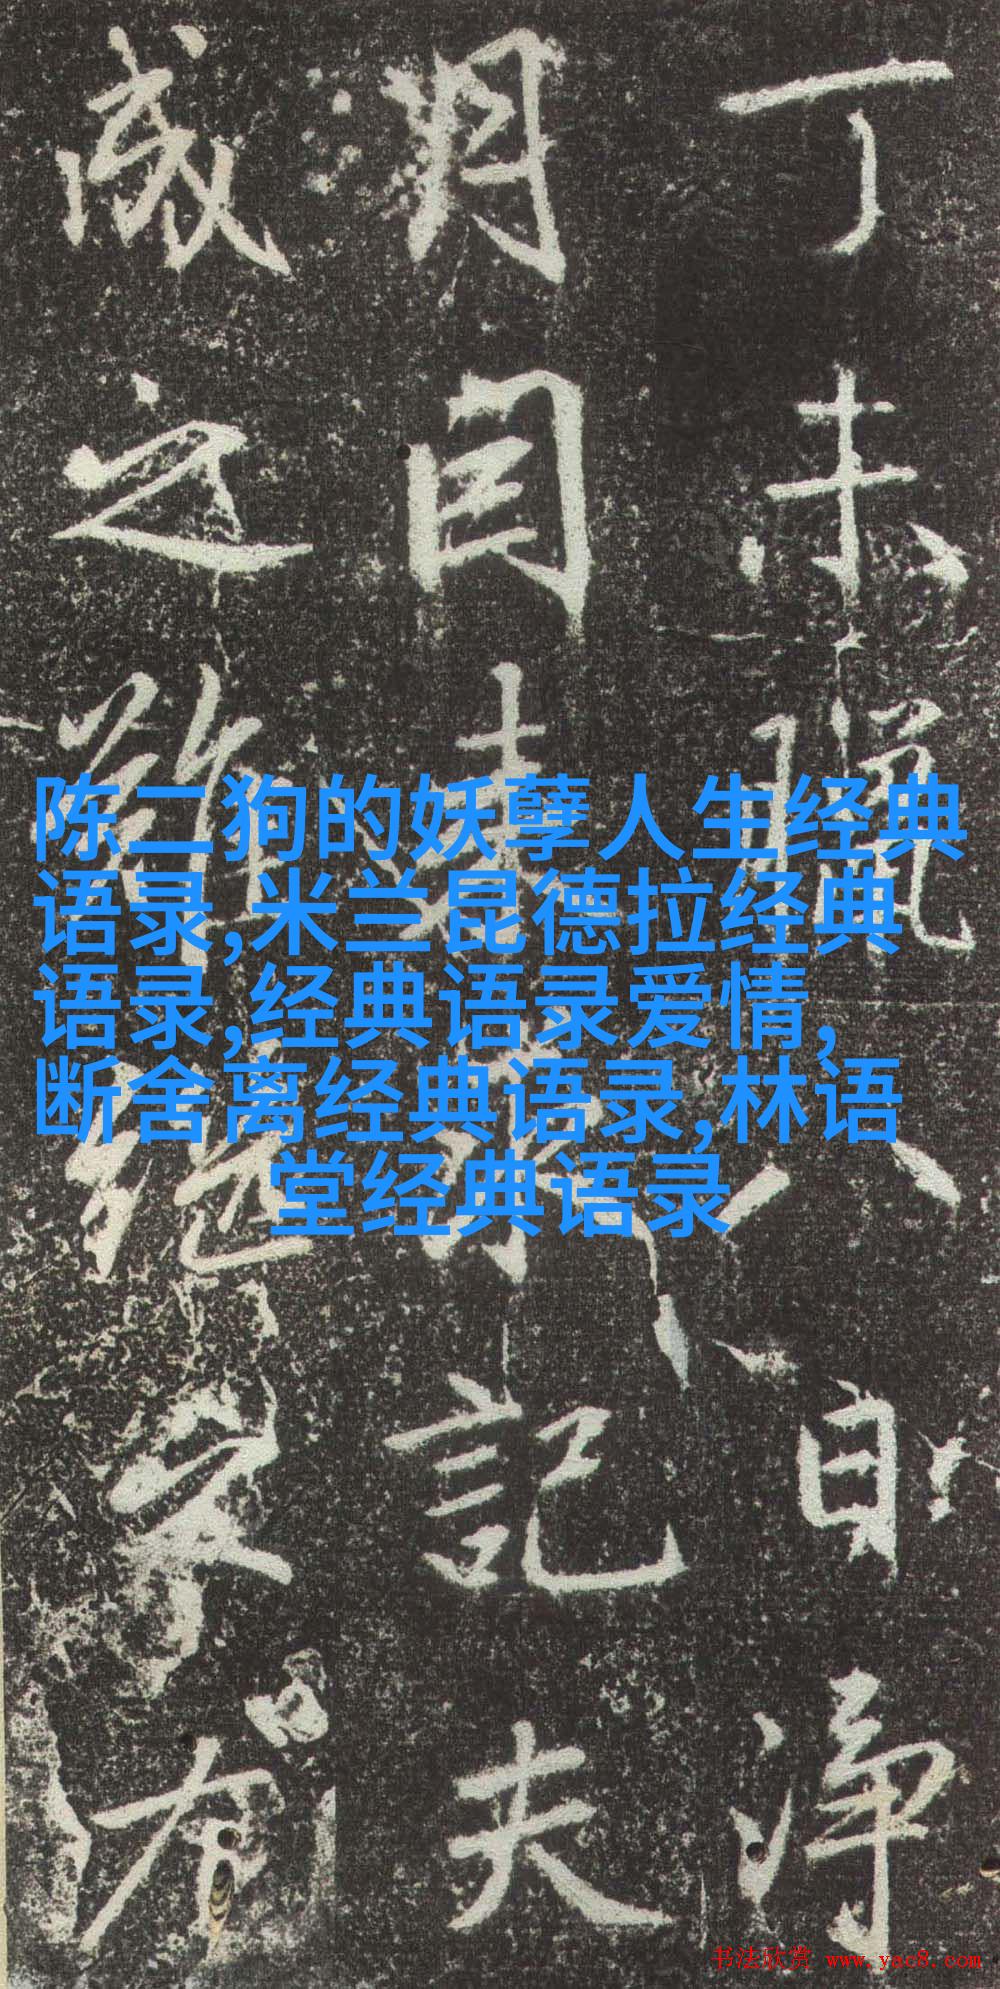 陈二狗的妖孽人生经典
语录,米兰昆德拉经典
语录,经典语录爱情,
断舍离经典语录,林语
堂经典语录
丁未臘八日淨
月記夫
之
书法欣赏 www.yac8.com